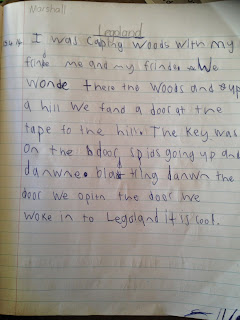 Marshall
Legoland
I was caping woods with my
frinde me and my frinde we
wonde there the woods and up
a hill we fand a door at the
tape to the hill. The key was
on the door spids going up and
danwne. blas tling danwn the
door we opitn the door we
woke in to Legoland it is cool.